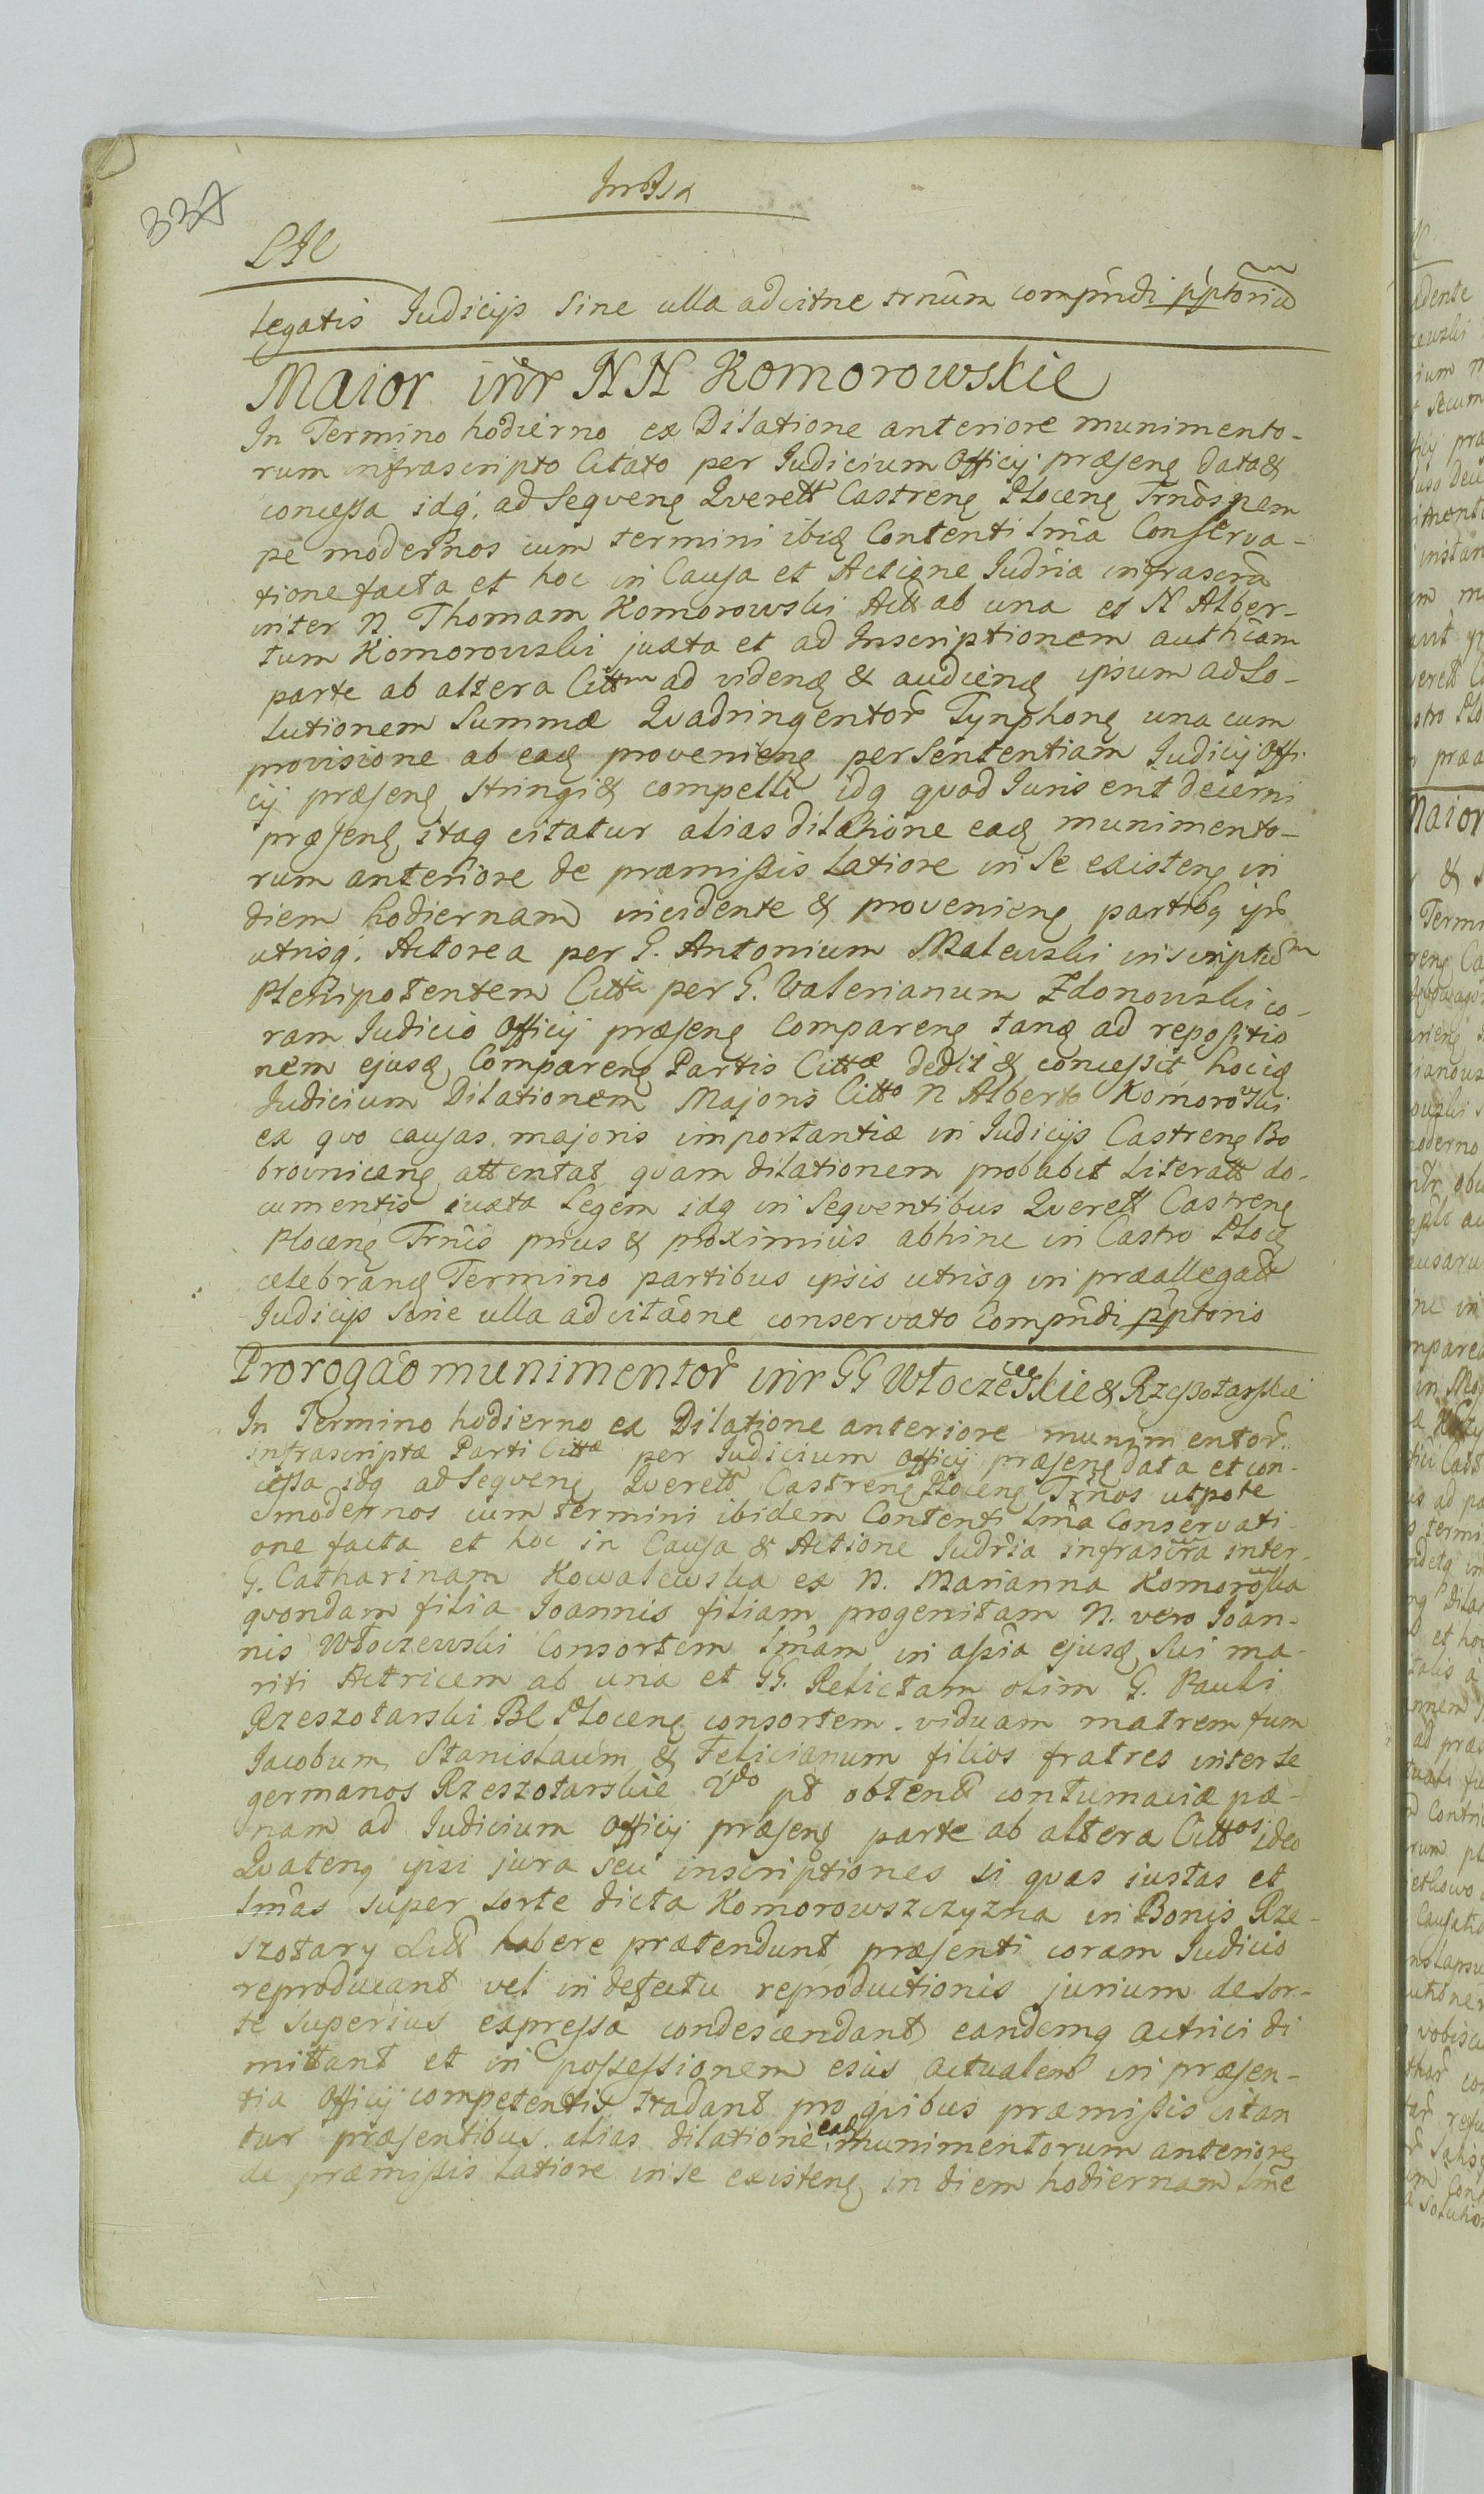 337
LIC
legatis Judicijs Sine ulla adcitne trnum compndi pptorio
Maior intr NN Komorowskie
In Termino hodierno ex Dilatione anteriore munimento-
rum infrascripto Citato per Judicium Officij præsens data &
concessa idq; ad Seqvens Qverell Castrens Plocens Trnos nem
pe modernos cum termini ibid Contenti lma Conserva-
tione facta et hoc in Causa et Actione Judria infrascra
inter N Thomam Komorowski Act ab una et N Alber-
tum Komorowski juxta et ad Inscriptionem authcam
parte ab altera Cittm ad vidend & audiend ipsum ad so-
lutionem Summæ Qvadringentor Tynphons una cum
provisione ab ead proveniens per Sententiam Judicij Offi-
cij præsens stringi & compelli idq qvod Juris erit decerni
præsens, itaq citatur alias dilatione ead munimento-
rum anteriore de præmissis latiore in se existens in
diem hodiernam incidente & proveniens partibq ipis
utrisq; Actorea per G. Antonium Malewski inscriptum
Plenipotentem Citta per G. Valerianum Zdonowski co-
ram Judicio Officij præsens Comparens tanq ad repositio
nem ejusd Comparens Partis Cittæ dedit & concessit hocid
Judicium Dilationem Majoris Citto N Alberto Komorowski
ex qvo causas majoris importantiæ in Judicijs Castrens Bo
brovnicens attentat qvam dilationem probabit Literatt do-
cumentis iuxta Legem idq in Seqventibus Qverell Castrens
Plocens Trnis prius & proximius abhinc in Castro Ploc
celebrand Termino partibus ipsis utrisq in præallegatt
Judicijs sine ulla adcitaone conservato Compndi pptorio
Prorogao munimentor intr GG Włoczewskie & Rzeszotarskie
In Termino hodierno ex Dilatione anteriore munimentor
infrascriptæ Parti Cittæ per Judicium Officij præsens data et con-
cessa idq ad Seqvens Qverell Castrens Plocens Trnos utpote
modernos cum termini ibidem Contenti lma Conservati-
one facta et hoc in Causa & Actione Judria infrascra inter
G. Catharinam Kowalewska ex N. Marianna Komorowska
qvondam filia Joannis filiam progenitam N. vero Joan-
nis Włoczewski Consortem lmam in assia ejusd sui ma-
riti Actricem ab una et GG. Relictam olim G. Pauli
Rzeszotarski BC Plocens consortem viduam matrem tum
Jacobum Stanislaum & Felicianum filios fratres inter se
germanos Rzeszotarskie 2do pt obtent contumaciæ pæ-
nam ad Judicium Officij præsens parte ab altera Cittos ideo
Qvatenq ipsi jura seu inscriptiones si qvas iustas et
lmas super sorte dicta Komorowszczyzna in Bonis Rze-
szotary Litt habere prætendunt præsenti coram Judicio
reproducant vel in defectu reproductionis jurium de sor-
te superius expressa condescendant eandemq actrici di
mittant et in possessionem eius actualem in præsen-
tia Officij competentis tradant pro qvibus præmissis citan
tur præsentibus alias dilatione ead munimentorum anteriore
de præmissis latiore in se existens in diem hodiernam lme